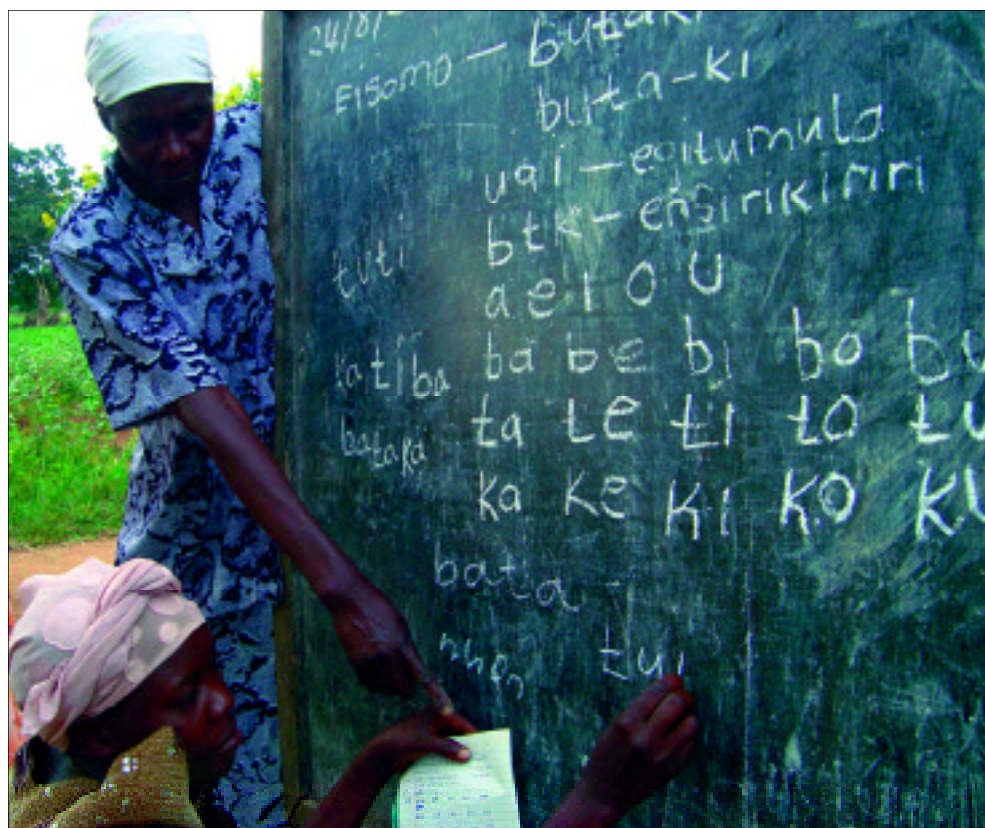 24/8/
Eisomo — butaki
buta-ki
uai — egitumula
btk — ensirikiriri
tuti
a e i o U
katiba ba be bi bo bu
ta te ti to tu
bataka
ka ke ki ko ku
bata
tui